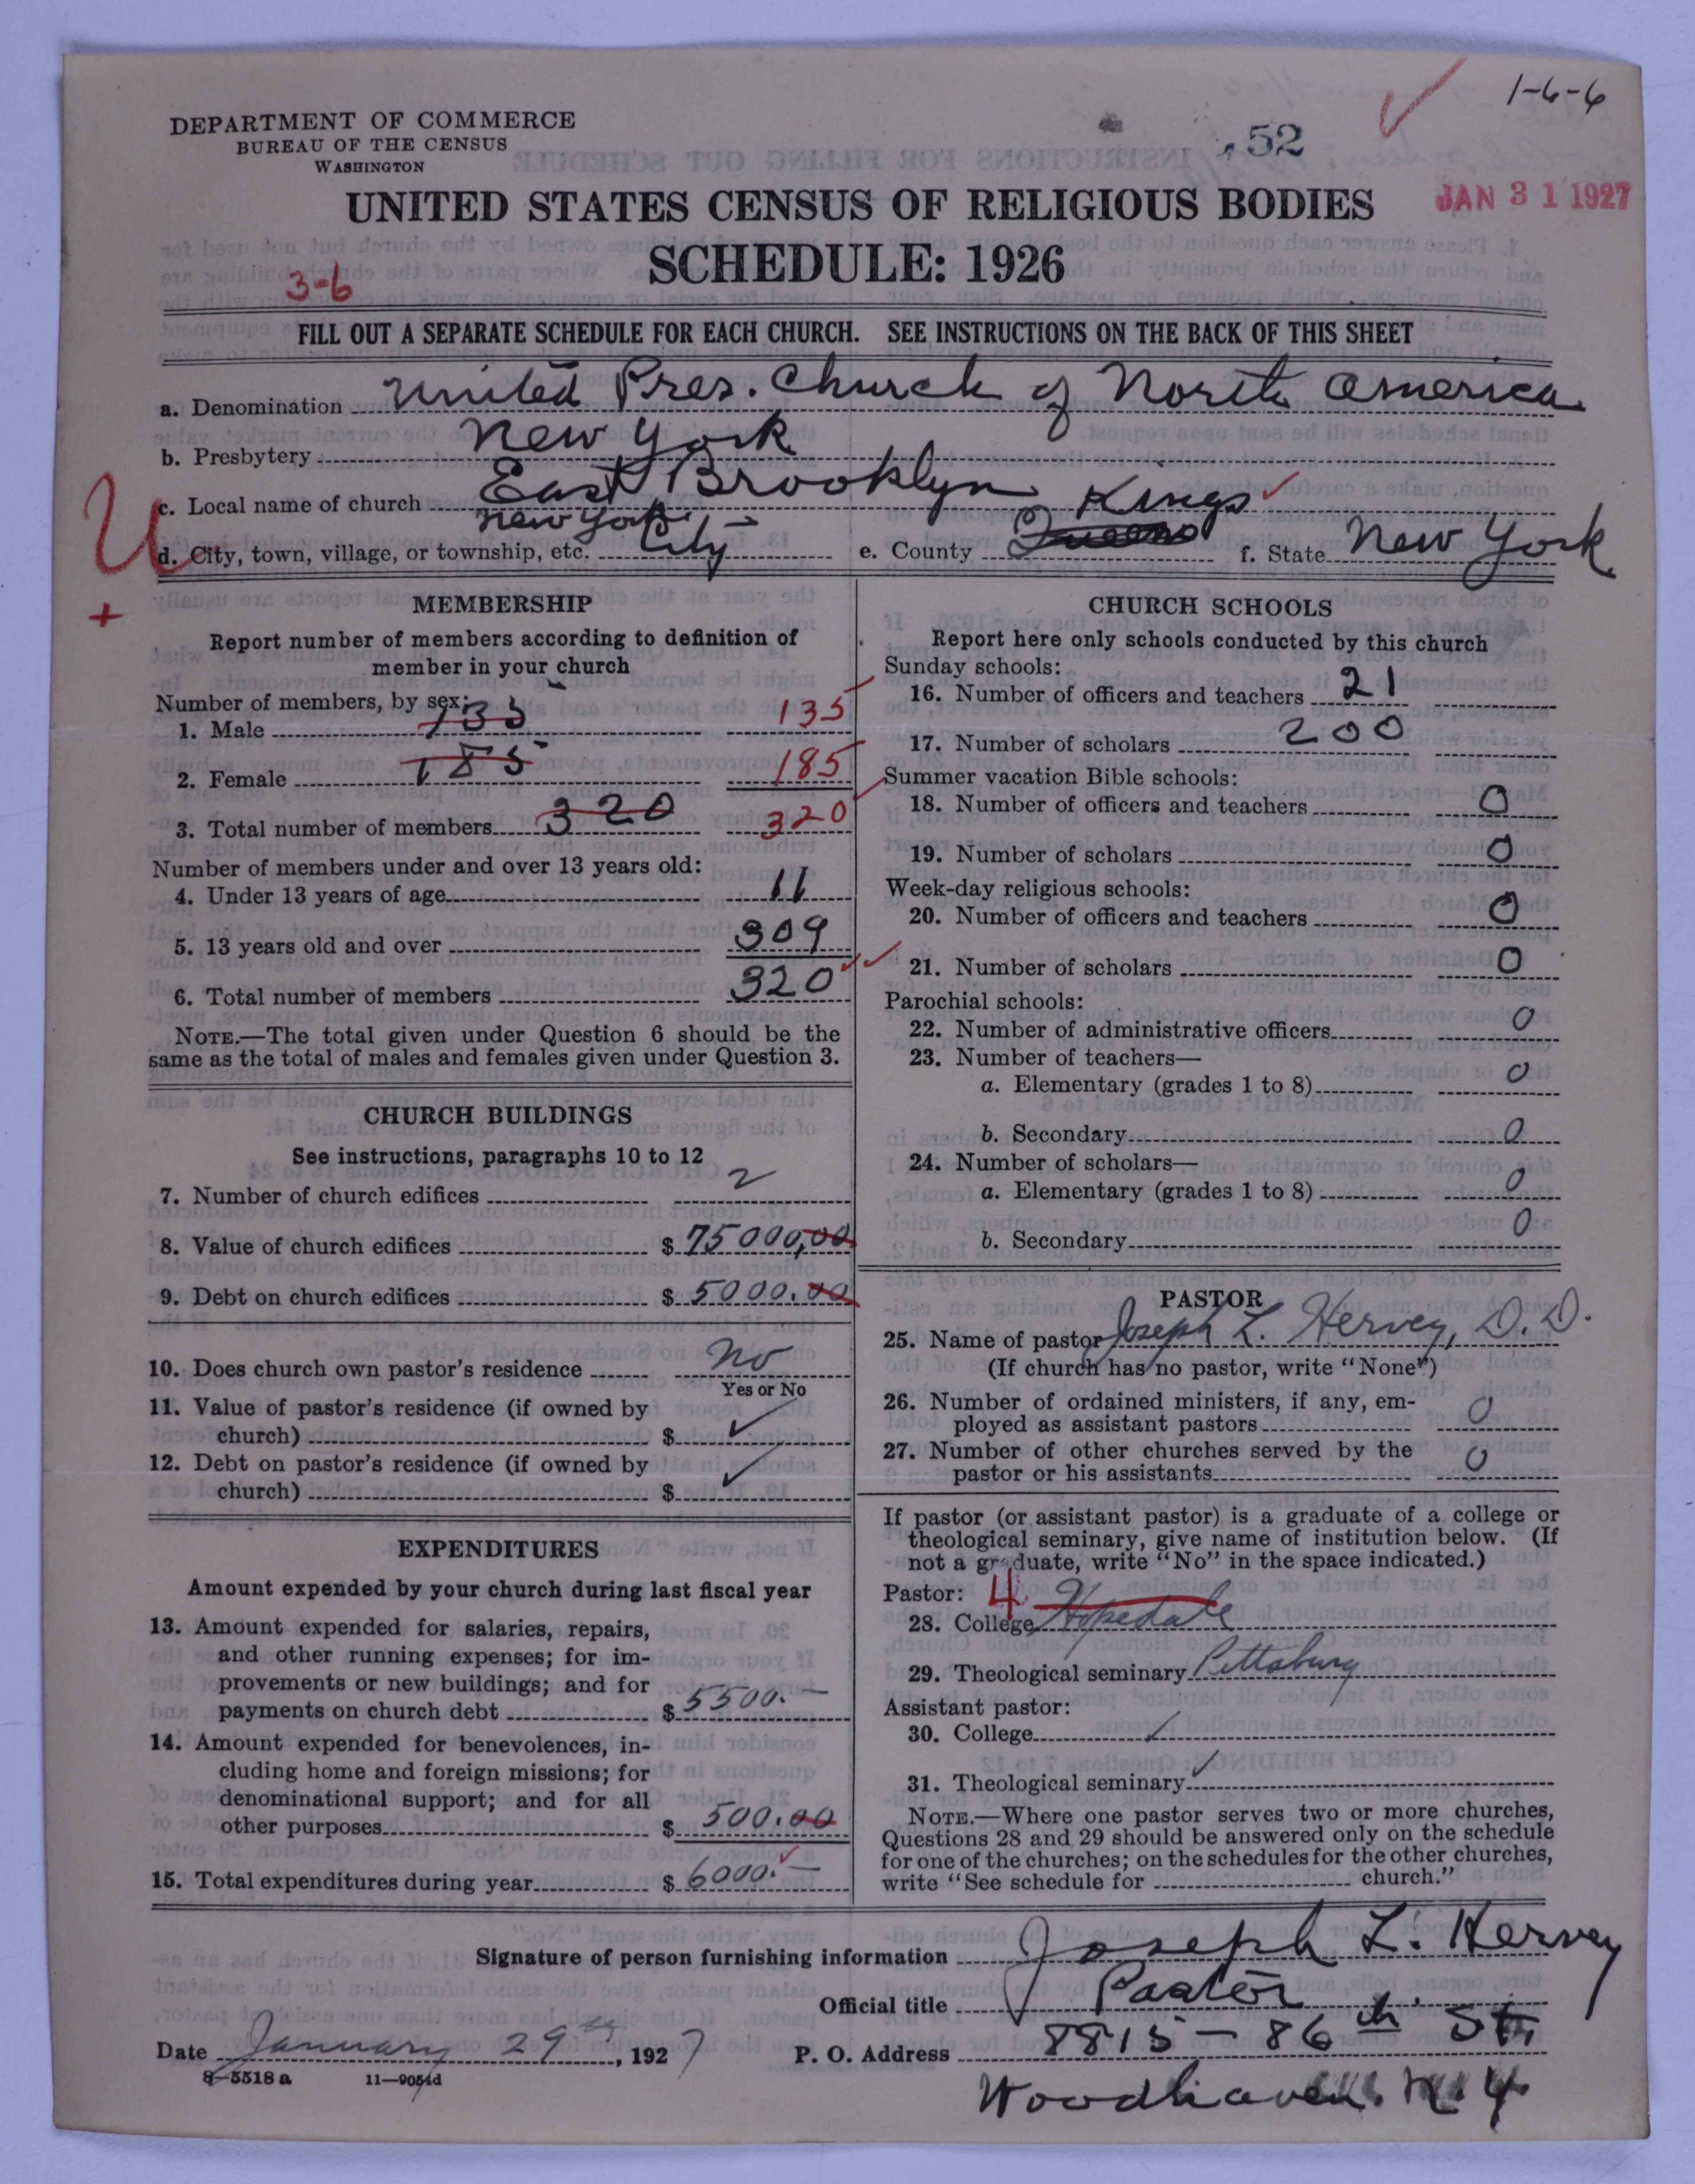 1-6-6
DEPARTMENT OF COMMERCE
BUREAU OF THE CENSUS
WASHINGTON
52
UNITED STATES CENSUS OF RELIGIOUS BODIES
JAN 31 1927
SCHEDULE: 1926
3-6
FILL OUT A SEPARATE SCHEDULE FOR EACH CHURCH. SEE INSTRUCTIONS ON THE BACK OF THIS SHEET
a. Denomination United Pres. Church of North America
b. Presbytery New York
c. Local name of church East Brooklyn
U
d. City, town, village, or township, etc. New York City e. County Queens Kings f. State New York
+
MEMBERSHIP
Report number of members according to definition of
member in your church
Number of members, by sex:
1. Male 135 135
2. Female 185 185
3. Total number of members 320 320
Number of members under and over 13 years old:
4. Under 13 years of age 11
5. 13 years old and over 309
6. Total number of members 320
NOTE.—The total given under Question 6 should be the
same as the total of males and females given under Question 3.
CHURCH BUILDINGS
See instructions, paragraphs 10 to 12
7. Number of church edifices 2
8. Value of church edifices $ 75000,00
9. Debt on church edifices $ 5000.00
10. Does church own pastor's residence no
Yes or No
11. Value of pastor's residence (if owned by
church) $ ✓
12. Debt on pastor's residence (if owned by
church) $ ✓
EXPENDITURES
Amount expended by your church during last fiscal year
13. Amount expended for salaries, repairs,
and other running expenses; for im-
provements or new buildings; and for
payments on church debt $ 5500.—
14. Amount expended for benevolences, in-
cluding home and foreign missions; for
denominational support; and for all
other purposes $ 500.00
15. Total expenditures during year $ 6000.—
CHURCH SCHOOLS
Report here only schools conducted by this church
Sunday schools:
16. Number of officers and teachers 21
17. Number of scholars 200
Summer vacation Bible schools:
18. Number of officers and teachers 0
19. Number of scholars 0
Week-day religious schools:
20. Number of officers and teachers 0
21. Number of scholars 0
Parochial schools:
22. Number of administrative officers 0
23. Number of teachers—
a. Elementary (grades 1 to 8) 0
b. Secondary 0
24. Number of scholars—
a. Elementary (grades 1 to 8) 0
b. Secondary 0
PASTOR
25. Name of pastor Joseph L. Hervey, D.D.
(If church has no pastor, write "None")
26. Number of ordained ministers, if any, em-
ployed as assistant pastors 0
27. Number of other churches served by the
pastor or his assistants 0
If pastor (or assistant pastor) is a graduate of a college or
theological seminary, give name of institution below. (If
not a graduate, write "No" in the space indicated.)
Pastor: 4
28. College Hopedale
29. Theological seminary Pittsburg
Assistant pastor:
30. College ✓
31. Theological seminary ✓
NOTE.—Where one pastor serves two or more churches,
Questions 28 and 29 should be answered only on the schedule
for one of the churches; on the schedules for the other churches,
write "See schedule for church."
Signature of person furnishing information Joseph L. Hervey
Official title Pastor
Date January 29th, 1927 P. O. Address 8815-86th St.
8-5518a 11-9054d
Woodhaven. N.Y.